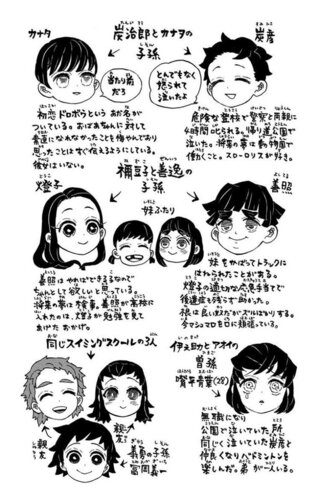 カナタ
炭治郎とカナヲの
子孫
炭彦
当たり前
だろ
とんでもなく
怒られて
泣いたよ
初恋ドロボウというあだ名が
ついている。おばあちゃんに対して
素直になんなかったことを悔やんでおり
思ったことはすぐ伝えるようにしている。
彼女はいない。
危険な登校で警察と両親に
4時間叱られる。帰り道公園で
泣いた。将来の夢は動物園で
働くこと。スローロリスが好き。
禰豆子と善逸の
子孫
燈子
善照
妹ふたり
善照はやればできる子なので
ちゃんとして欲しいと思っている。
将来の夢は検事。善照が高校に
入れたのは、燈子が勉強を見て
あげたおかげ。
妹をかばってトラックに
はねられたことがある。
燈子の適切な応急手当てで
後遺症も残らず助かった。
根は良い奴だがズルばかりする。
タマシマロを日に6回は
同じスイミングスクールの3人
親友
親友
義勇の子孫
冨岡義一
伊之助とアオイの
曾孫
嘴平青葉(28)
無職になり
公園で泣いていた所、
同じく泣いていた炭彦と
仲良くなりバドミントンを
楽しんだ。弟が一人いる。